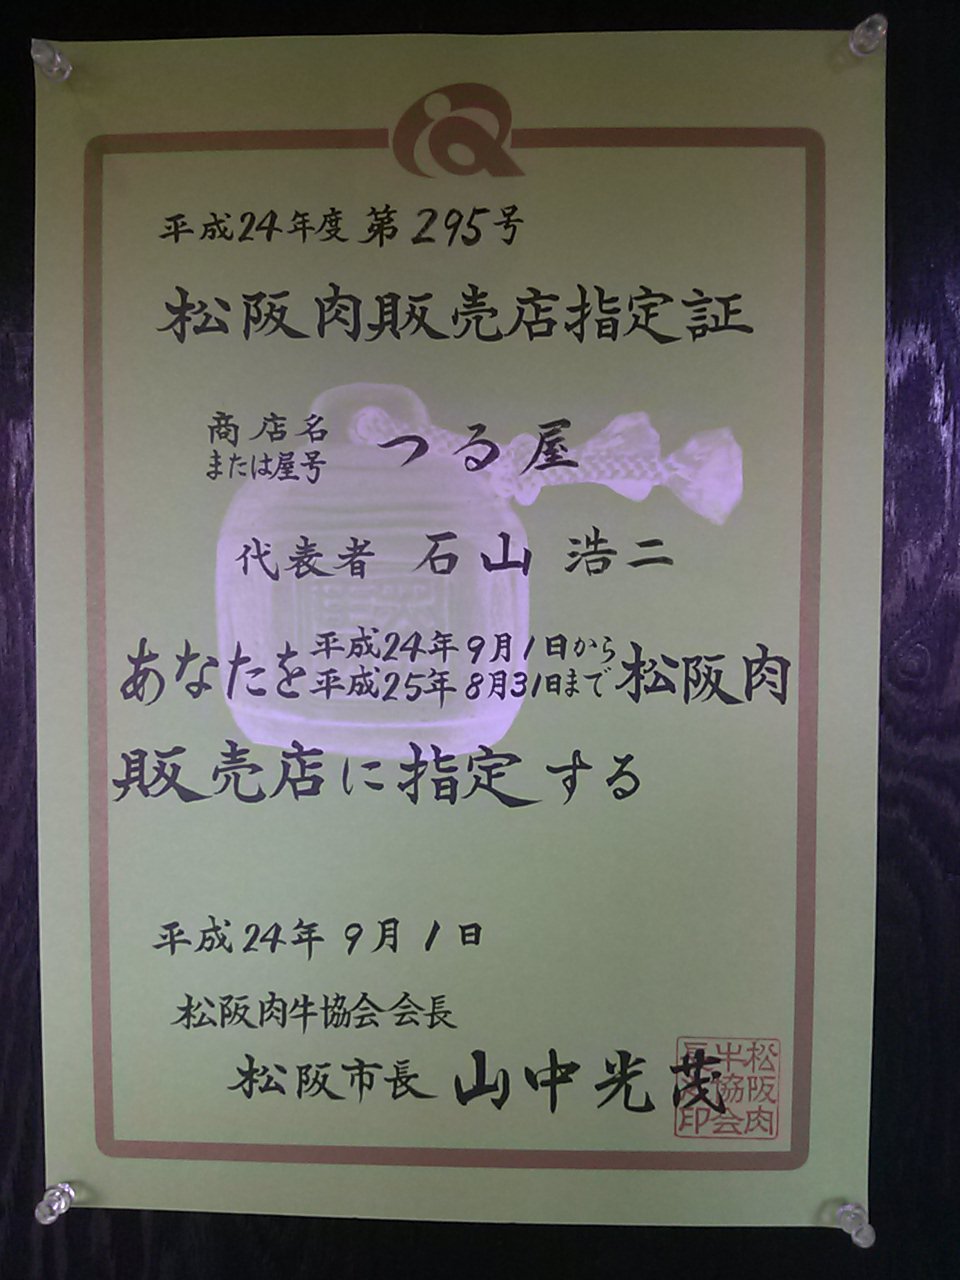 平成24年度 第295号
松阪肉販売店指定証
商店名
または屋号
つる屋
代表者 石山 浩二
あなたを
平成24年9月1日から
平成25年8月31日まで
松阪肉
販売店に指定する
平成24年9月1日
松阪肉牛協会会長
松阪市長 山中光茂
松阪肉
牛協会
長之印